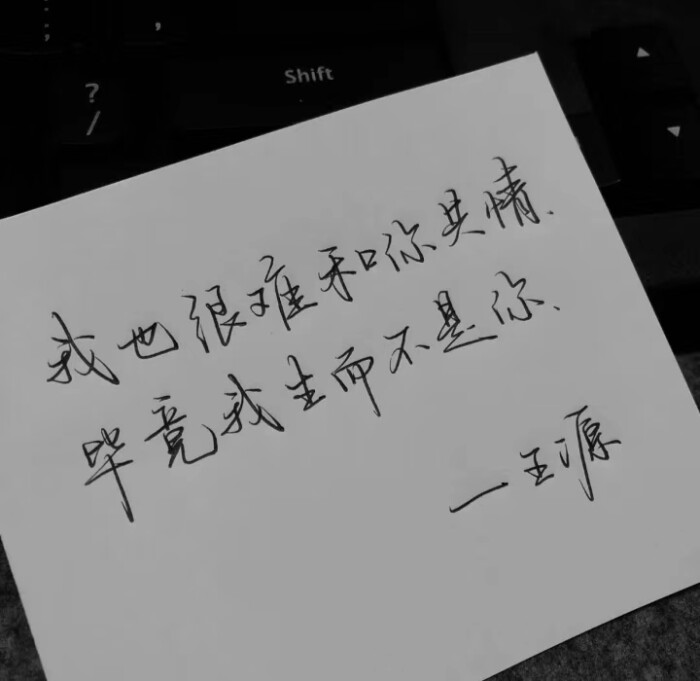 ;
:
,
?
/
Shift
▲
▼
我也很难和你共情.
毕竟我生而不是你、
—王源